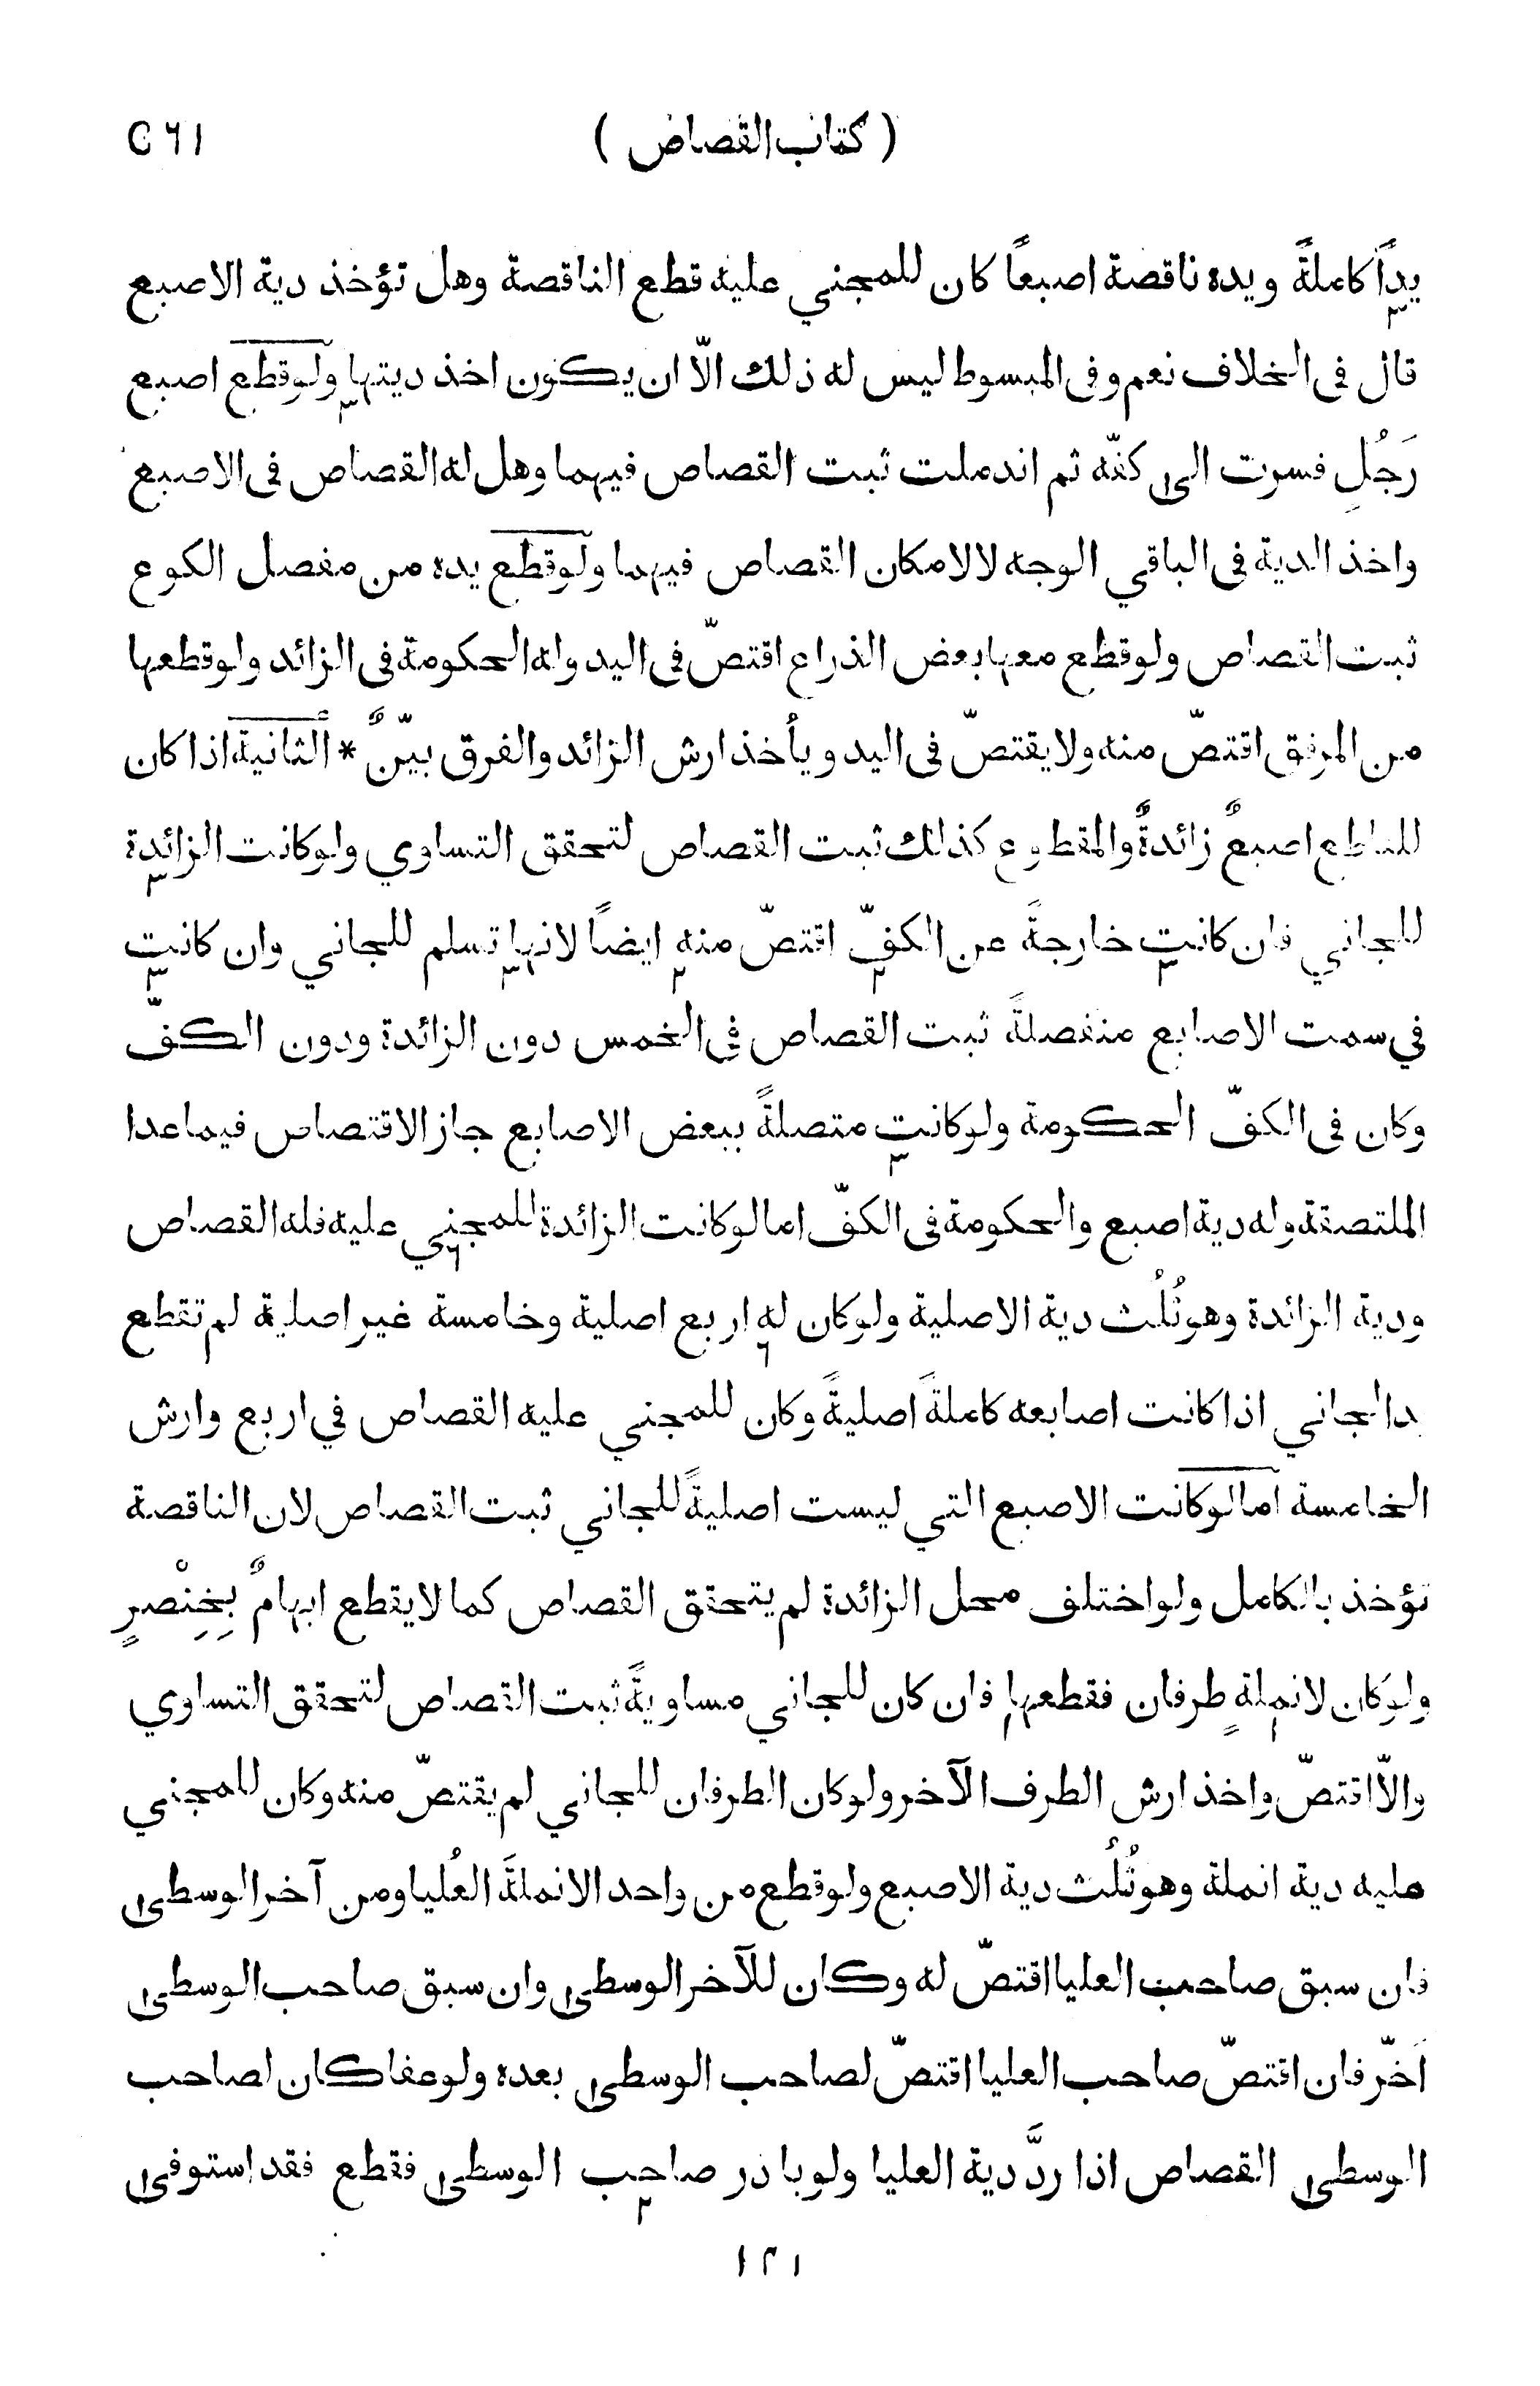 ( كتاب القصاص ) ٥٦١
يداً كاملةً ويده ناقصة اصبعاً كان للمجني عليه قطع الناقصة وهل تؤخذ دية الاصبع
قال في الخلاف نعم وفي المبسوط ليس له ذلك الّا ان يكون اخذ ديتها ولو قطع اصبع
رَجُلِ فسرت الى كفّه ثم اندملت ثبت القصاص فيهما وهل له القصاص في الاصبع
واخذ الدية في الباقي الوجه لا لامكان القصاص فيهما ولو قطع يده من مفصل الكوع
ثبت القصاص ولو قطع معها بعض الذراع اقتصّ في اليد وله الحكومة في الزائد ولو قطعها
من المرفق اقتصّ منه ولا يقتصّ في اليد ويأخذ ارش الزائد والفرق بيّنٌ * الثانية اذا كان
للقاطع اصبعٌ زائدةٌ وللمقطوع كذلك ثبت القصاص لتحقق التساوي ولو كانت الزائدة
للجاني فان كانت خارجةً عن الكفّ اقتصّ منه ايضاً لانها تسلم للجاني وان كانت
في سمت الاصابع منفصلةً ثبت القصاص في الخمس دون الزائدة ودون الكفّ
وكان في الكفّ الحكومة ولو كانت متصلةً ببعض الاصابع جاز الاقتصاص فيما عدا
الملتصقة وله دية اصبع والحكومة في الكفّ اما لو كانت الزائدة للمجني عليه فله القصاص
ودية الزائدة وهو ثُلُث دية الاصلية ولو كان له اربع اصلية وخامسة غير اصلية لم تقطع
يد الجاني اذا كانت اصابعه كاملةً اصليةً وكان للمجني عليه القصاص في اربع وارش
الخامسة اما لو كانت الاصبع التي ليست اصليةً للجاني ثبت القصاص لان الناقصة
تؤخذ بالكامل ولو اختلف محل الزائدة لم يتحقق القصاص كما لا يقطع ابهامٌ بِخِنْصرٍ
ولو كان لانملةٍ طرفان فقطعها فان كان للجاني مساويةً ثبت القصاص لتحقق التساوي
والّا اقتصّ واخذ ارش الطرف الآخر ولو كان الطرفان للجاني لم يقتصّ منه وكان للمجني
عليه دية انملة وهو ثُلُث دية الاصبع ولو قطع من واحد الانملةَ العُليا ومن آخر الوسطى
فان سبق صاحب العليا اقتصّ له وكان للآخر الوسطى وان سبق صاحب الوسطى
اَخّر فان اقتصّ صاحب العليا اقتصّ لصاحب الوسطى بعده ولو عفا كان لصاحب
الوسطى القصاص اذا ردَّ دية العليا ولو بادر صاحب الوسطى فقطع فقد استوفى
١٢١